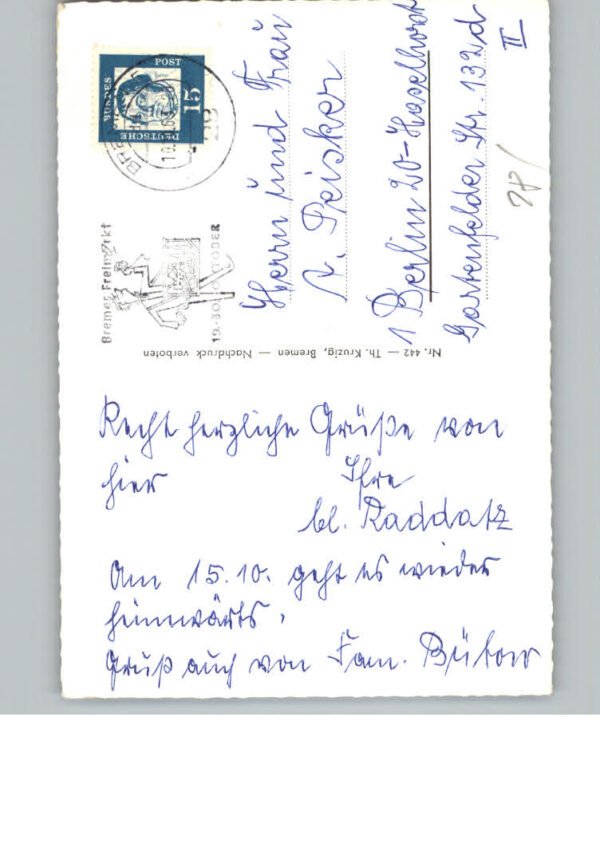 Recht herzliche Grüße von
hier Ihre
Raddatz
Am 15.10. geht es wieder
heimwärts.
Gruß auch von Fam. Bütow
Herrn und Frau
Peisker
1 Berlin 20-Haselhorst
Gartenfelder Str. 132d
II
Nr. 442 — Th. Kruzig, Bremen — Nachdruck verboten
DEUTSCHE
BUNDES
POST
15
BREMEN
28
Bremer Freimarkt
OKTOBER